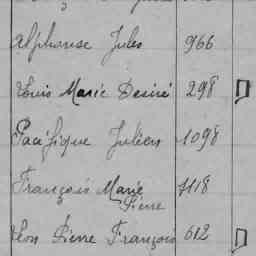 Alphonse Jules 966
Louis Marie Désiré 298
Pacifique Julien 1098
François Marie 1118
Pierre
Léon Pierre François 612